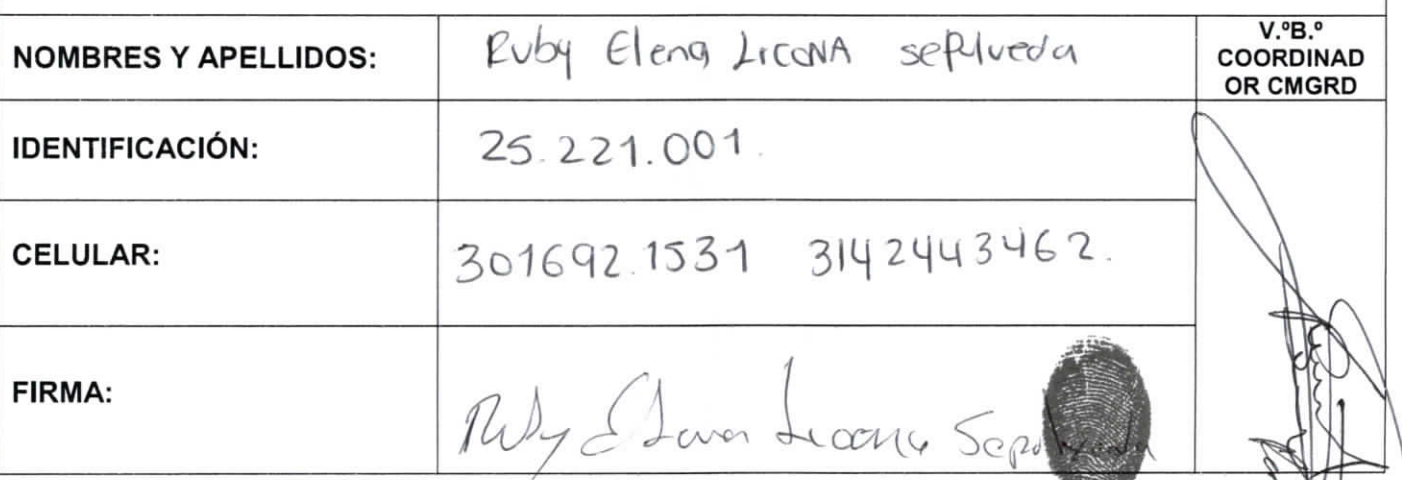 NOMBRES Y APELLIDOS: Ruby Elena LicoNA sepulveda
V.ºB.º
COORDINAD
OR CMGRD
IDENTIFICACIÓN: 25.221.001.
CELULAR: 301692.1531 3142443462.
FIRMA: Ruby Elena Licona Sepulveda